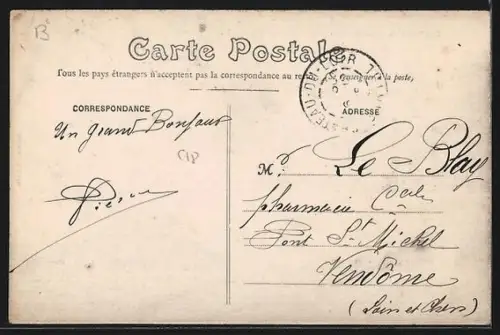 B
Carte Postale
Tous les pays étrangers n'acceptent pas la correspondance au recto (Se renseigner à la poste,
CORRESPONDANCE
ADRESSE
CHATEAU-DU-LOIR
Un grand Bonjour
Pierre
Mr. Le Blay
pharmacie Cale
Pont St Michel
Vendôme
(Loir et Cher)